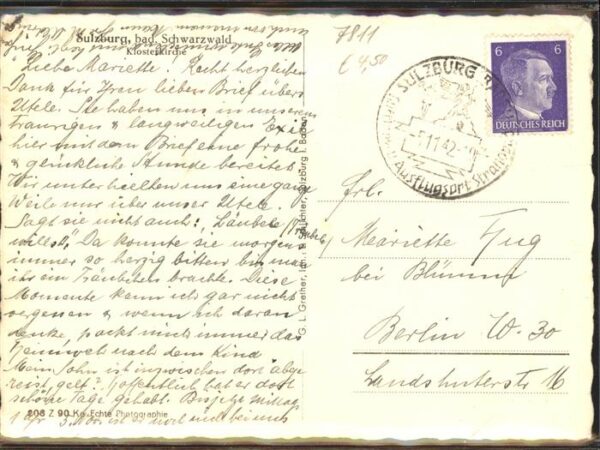 Sulzburg, bad. Schwarzwald
Klosterkirche
Liebe Mariette. Recht herzlichen
Dank für Ihren lieben Brief über
Utele. Sie haben uns in unserem
traurigen & langweiligen Exil
hier mit dem Briefe eine frohe
& glückliche Stunde bereitet.
Wir unterhielten uns eine ganze
Weile nur über unser Utele.
Sagt sie nicht auch: "Täubele
willst". Da konnte sie morgens
immer so herzig bitten bis man
ihr ein Täubchen brachte. Diese
Momente kann ich gar nicht
vergessen & wenn ich daran
denke, packt mich immer das
Heimweh nach dem Kind
Mein Sohn ist inzwischen dort abge
reist, gelt? Hoffentlich hat er dort
schöne Tage gehabt. Bis jetzt Mittag
1 Uhr 5. Nov. ist er noch nicht bei uns
208 Z 90 Ko Echte Photographie
G. L. Greiher, Sulzburg i. Baden
7811
£ 4,50
SULZBURG
5.11.42
Ausflugsort
6 6
DEUTSCHES REICH
Frl.
Mariette Zug
bei Blümm
Berlin W. 30
Landshuterstr 16